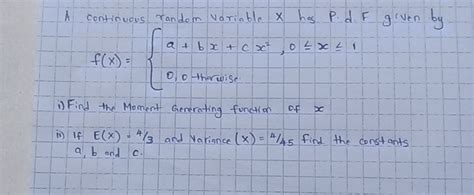 A continuous random variable X has P.d.F given by
f(x) = { a + bx + cx², 0 ≤ x ≤ 1
0, otherwise
i) Find the Moment Generating function of x
ii) If E(X) = 4/3 and Variance (X) = 4/45 find the constants
a, b and c.